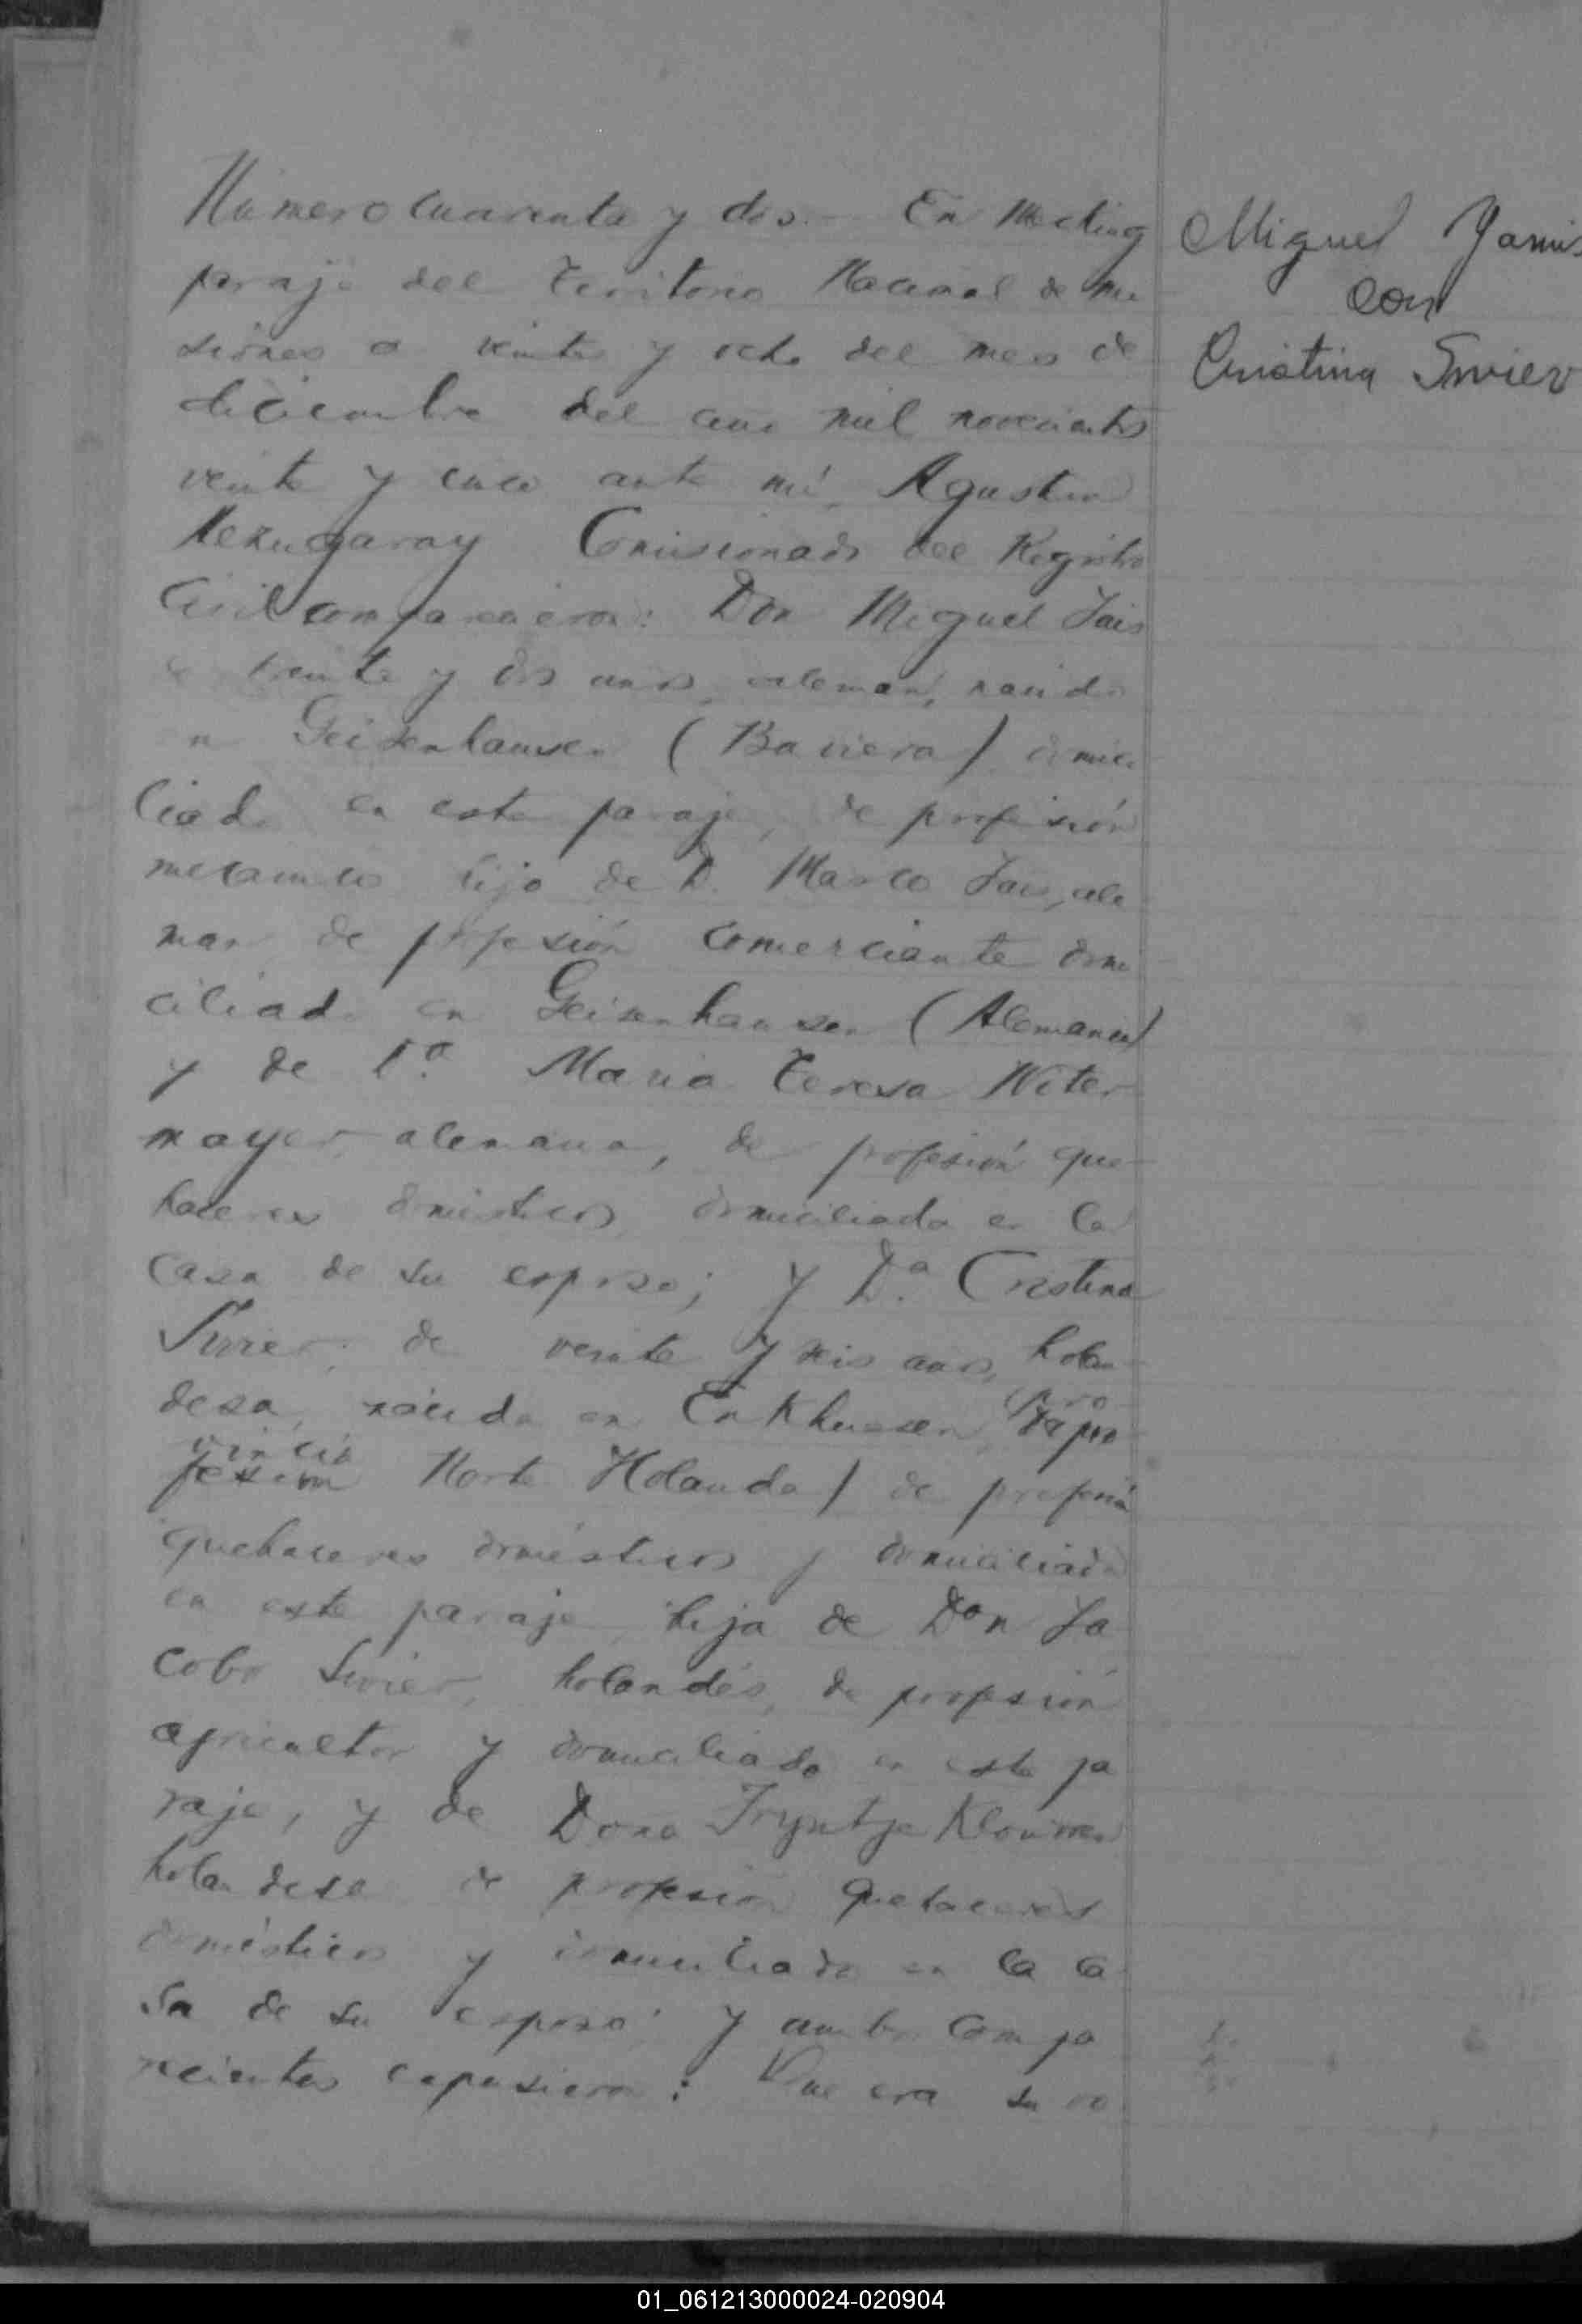 Número cuarenta y dos.— En Mecking
paraje del Territorio Nacional de Mi
siones a veinte y ocho del mes de
diciembre del año mil novecientos
veinte y cinco ante mí, Agustin
Comisionado del Registro
Civil comparecieron: Don Miguel Jais
de treinta y dos años, aleman, nacido
en Geisenhausen (Baviera) domici
liado en este paraje, de profesión
mecanico hijo de D. Marco Jais, ale
man de profesión comerciante domi
ciliado en Geisenhausen (Alemania)
y de Dª Maria Teresa Niter
mayer alemana, de profesión que-
haceres domésticos domiciliada en la
casa de su esposo; y Dª. Cristina
Swier de veinte y seis años, holan-
desa, nacida en Enkhuesen (pro
vincia Norte Holanda) de profesión
quehaceres domésticos y domiciliada
en este paraje, hija de Don Ja
cobo Swier, holandés, de profesión
agricultor y domiciliado en este pa
raje, y de Dona Tryntje
holandesa de profesión quehaceres
domésticos y domiciliada en la ca
sa de su esposo; y ambos compa
recientes expusieron: Que era su vo
Miguel Yamis
con
Cristina Swier
01_061213000024-020904